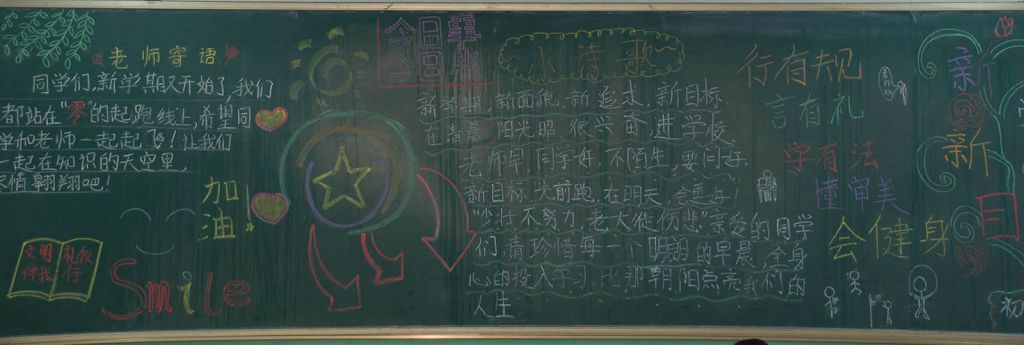 老师寄语
同学们,新学期又开始了,我们
都站在“零”的起跑线上,希望同
学和老师一起起飞!让我们
一起在知识的天空里,
尽情翱翔吧!
加油!
文明 礼仪
伴我 行
Smile
今日
小诗歌
新学期,新面貌,新追求,新目标
在清晨,阳光照,很兴奋,进学校
老师早,同学好,不陌生,要问好
新目标,大前跑,在明天,会更好!
“少壮不努力,老大徒伤悲”亲爱的同学
们,请珍惜每一个 的早晨,全身
心的投入学习,比那朝阳点亮我们的
人生
行有规
言有礼
学有法
懂审美
会健身
新
新
目
初